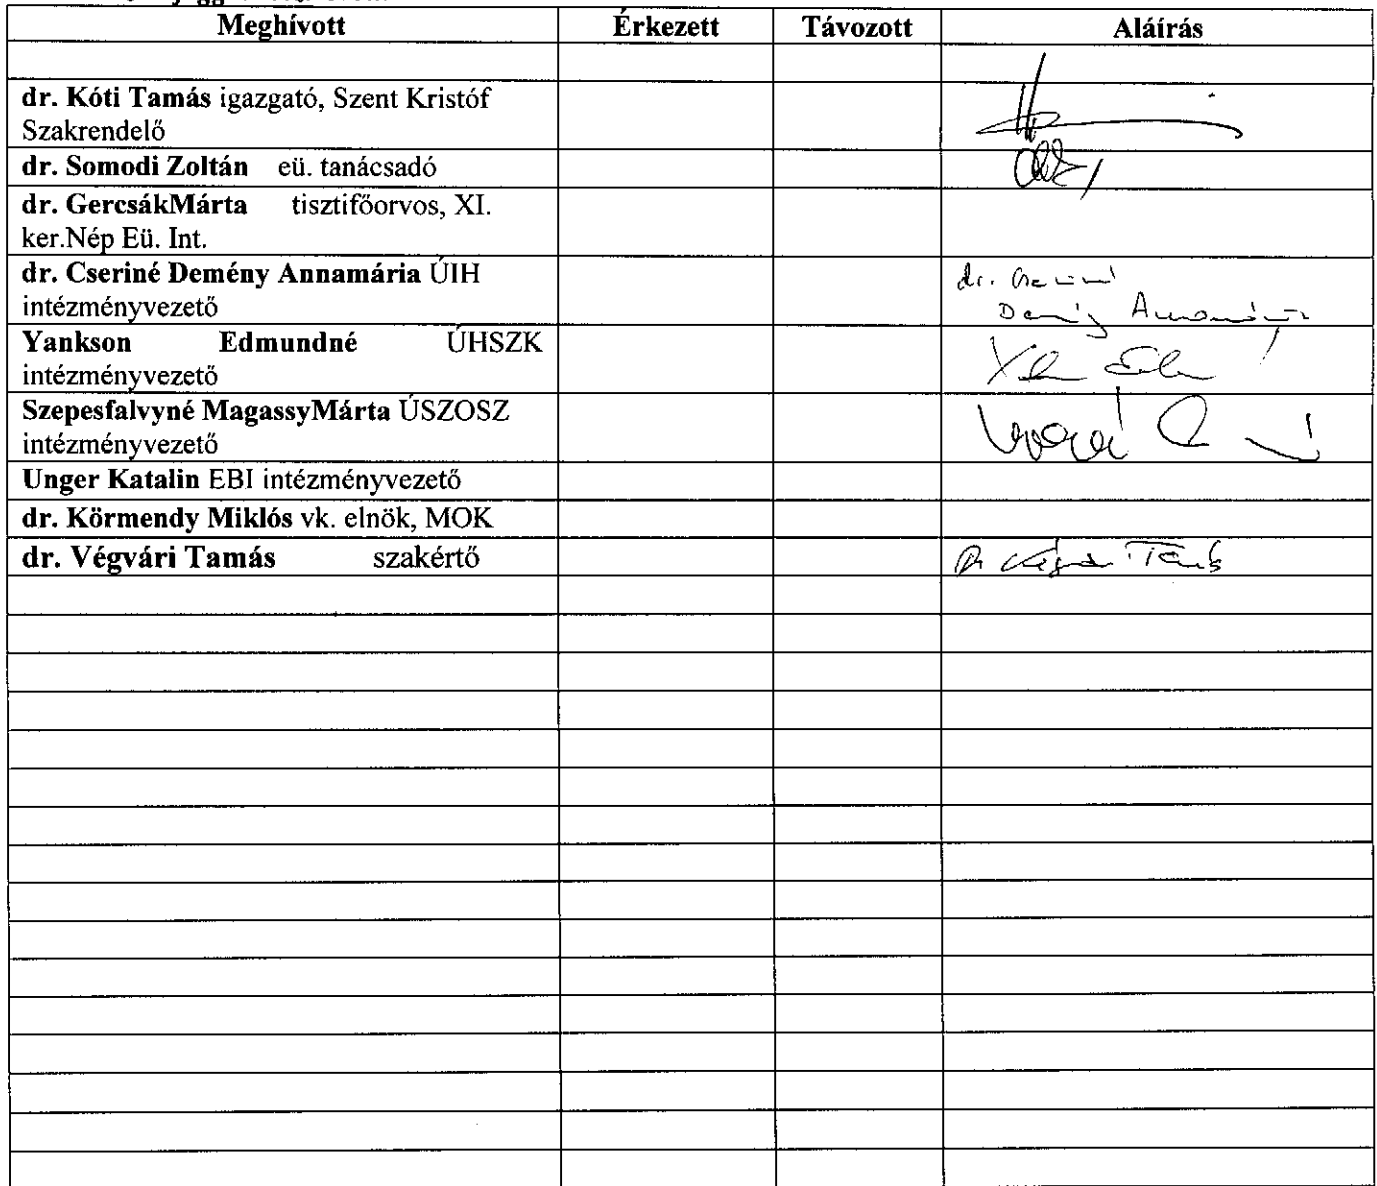 Meghívott Érkezett Távozott Aláírás
dr. Kóti Tamás igazgató, Szent Kristóf
Szakrendelő
dr. Somodi Zoltán eü. tanácsadó
dr. GercsákMárta tisztifőorvos, XI.
ker.Nép Eü. Int.
dr. Cseriné Demény Annamária ÚIH
intézményvezető
dr. Cseriné
Demény Annamária
Yankson Edmundné ÚHSZK
intézményvezető
Szepesfalvyné MagassyMárta ÚSZOSZ
intézményvezető
Unger Katalin EBI intézményvezető
dr. Körmendy Miklós vk. elnök, MOK
dr. Végvári Tamás szakértő
Dr Végvári Tamás